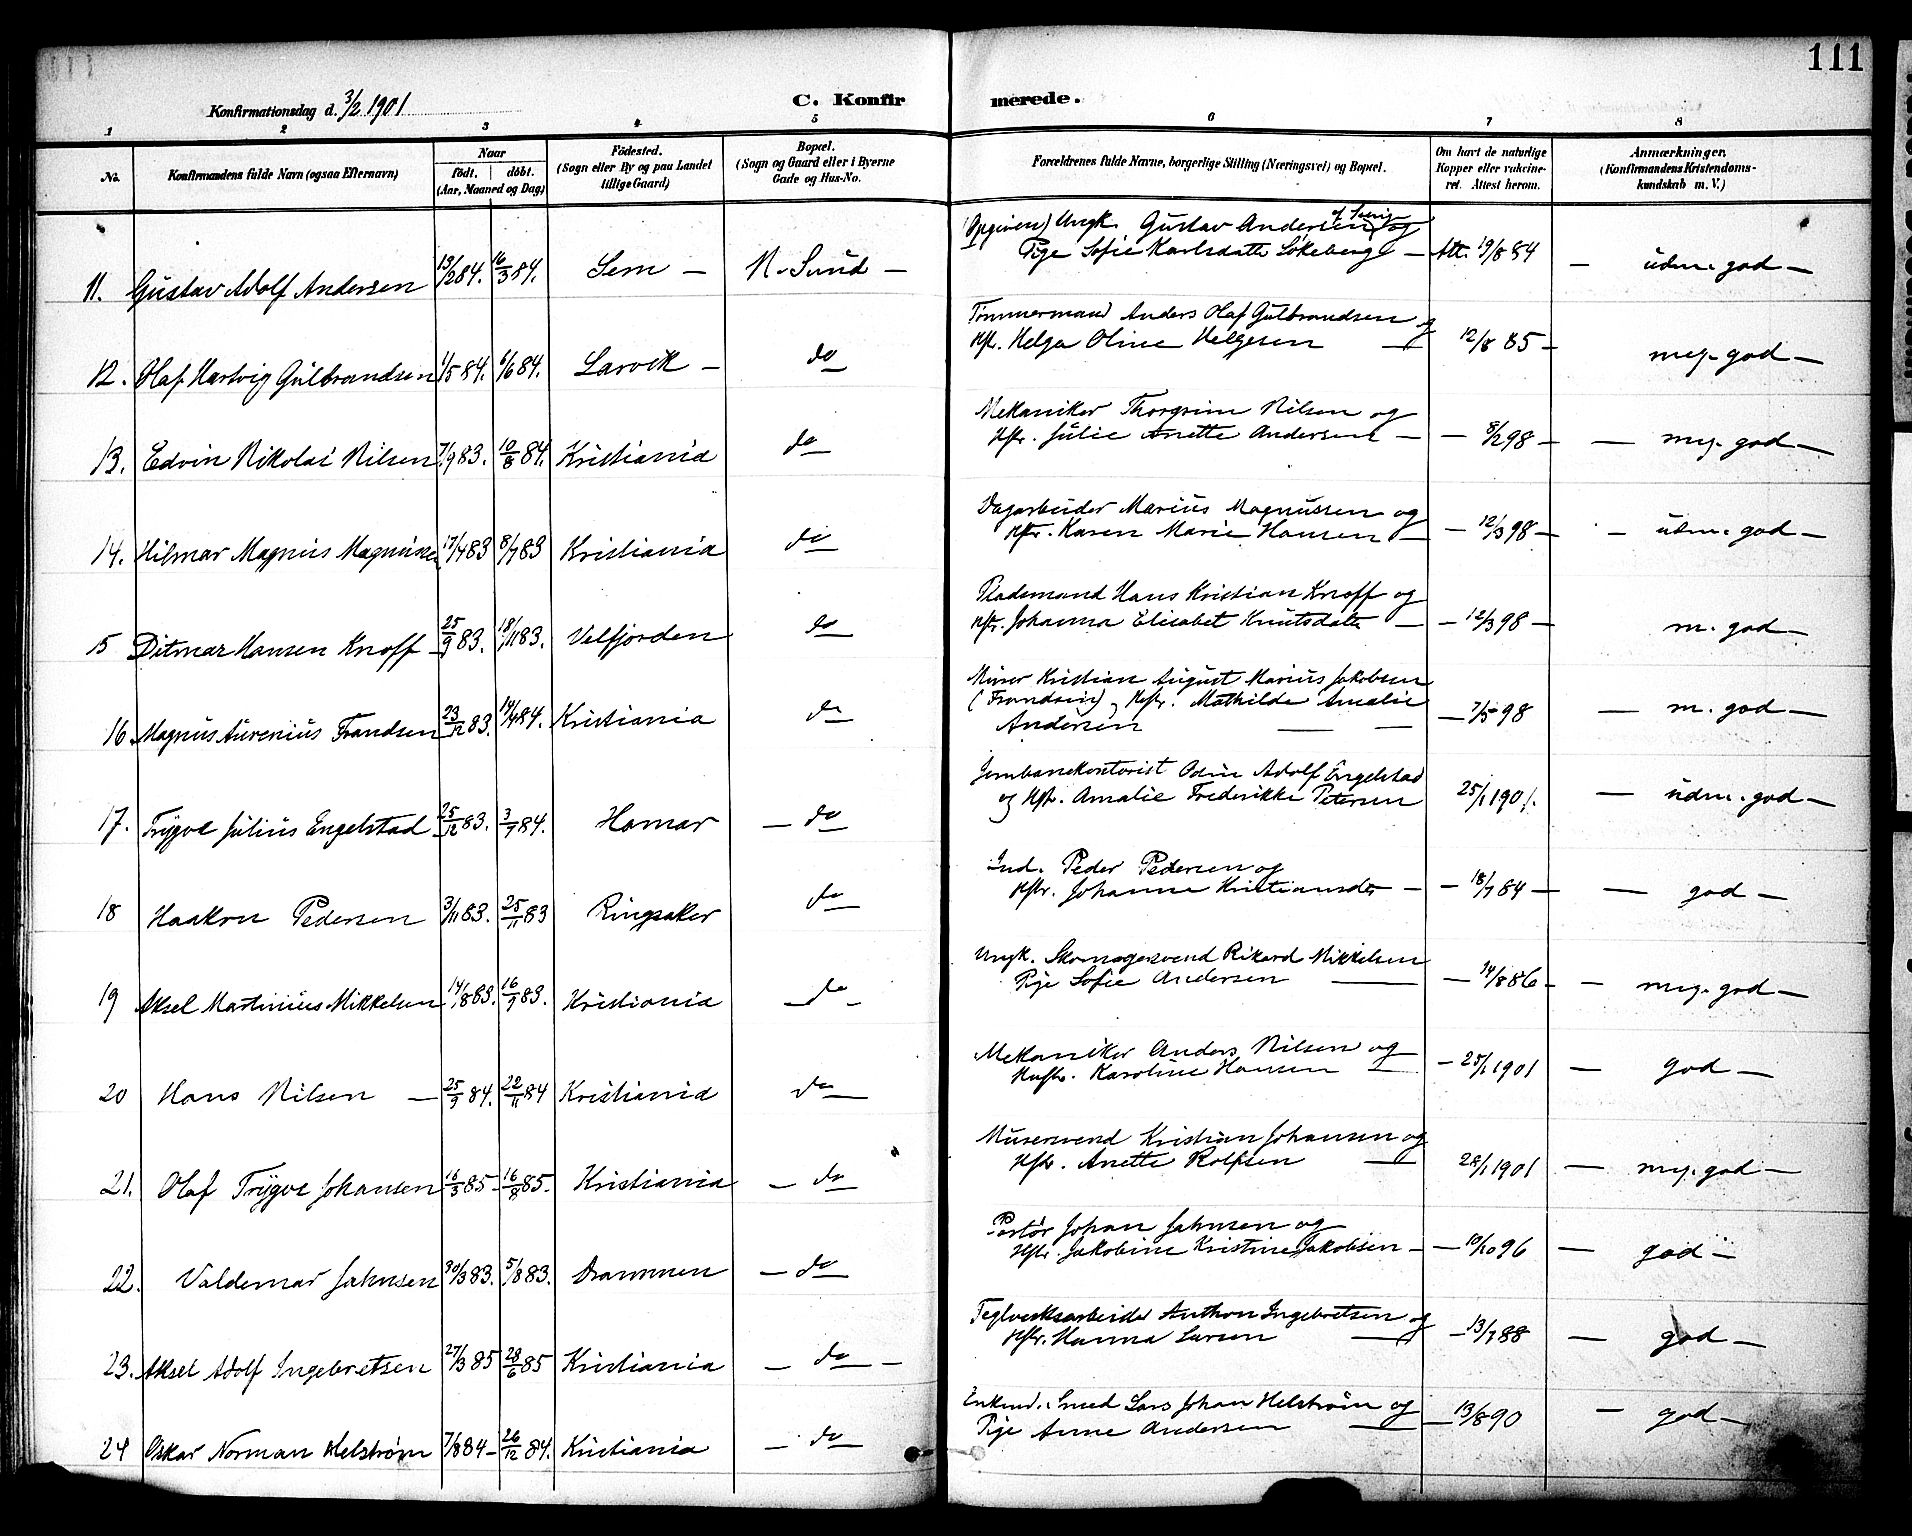 111
Konfirmationsdag d. 3/2 1901
C. Konfirmerede.
1 2 3 4 5 6 7 8
No. Konfirmandens fulde Navn (ogsaa Efternavn) Naar födt. döbt. (Aar, Maaned og Dag) Födested. (Sogn eller By og paa Landet tillige Gaard) Bopæl. (Sogn og Gaard eller i Byerne Gade og Hus-No. Forældrenes fulde Navne, borgerlige Stilling (Næringsvei) og Bopæl. Om havt de naturlige Kopper eller vakcineret. Attest herom. Anmærkninger. (Konfirmandens Kristendomskundskab m. V.)
(Opgiven) Ungk. Gustav Andersen og
11. Gustav Adolf Andersen 13/2 84. 16/3 84. Sem — N. Sund — Pige Sofie Karlsdatter Sökeberg — Att. 19/8 84 — udm. god —
Tömmermand Anders Olaf Gulbrandsen og
12. Olaf Hartvig Gulbrandsen 1/5 84. 6/6 84. Larvik — do Hst. Helga Oline Helgesen — 12/8 85 — meg. god —
Mekaniker Thorgrim Nilsen og
13. Edvin Nikolai Nilsen 7/9 83. 10/8 84. Kristiania do Hstr. Julie Anette Andersen — — 8/2 98 — — meg. god —
Dagarbeider Marius Magnussen og
14. Hilmar Magnus Magnussen 17/4 83 8/7 83 Kristiania do Hstr. Karen Marie Hansen — — 12/3 98 — — udm. god —
Pladsmand Hans Kristian Knoff og
15 Ditmar Hansen Knoff — 25/9 83. 18/11 83. Velfjorden do Hstr. Johanna Elisabet Knutsdatter — — 12/3 98 — m. god —
Murer Kristian August Marius Jakobsen
(Frandsen) og Hstr. Mathilde Amalie
16 Magnus Aurenius Frandsen 23/12 83. 14/4 84. Kristiania do Andersen — — — 7/5 98 — m. god —
Jernbanekontorist Odin Adolf Engelstad
17. Trygve Julius Engelstad 25/12 83. 3/7 84. Hamar — do og Hst. Amalie Frederikke Petersen 25/1 1901. — udm. god —
Ind. Peder Pedersen og
18 Haakon Pedersen 3/11 83. 25/11 83 Ringsaker do Hstr. Johanne Kristiansdtr — — 18/7 84 — — god —
Ungk. Skomagersvend Rikard Mikkelsen
19 Aksel Martinius Mikkelsen 14/8 83. 16/9 83. Kristiania — do — Pige Sofie Andersen — — 14/8 86 — — meg. god —
Mekaniker Anders Nilsen og
20 Hans Nilsen — 25/9 84. 22/11 84 Kristiania do Hustr. Karoline Hansen — — 25/1 1901 — god —
Murersvend Kristian Johansen og
21. Olaf Trygve Johansen 16/3 85 — 16/8 85. Kristiania — do Hstr. Anette Rolfsen — 28/1 1901 — meg. god —
Portör Johan Jahnsen og
22. Valdemar Jahnsen 30/3 83. 5/8 83. Drammen — do Hstr. Jakobine Kristine Jakobsen — — 10/10 96 — god —
Teglverksarbeider Anthon Ingebretsen og
23. Aksel Adolf Ingebretsen 27/3 85 28/6 85 Kristiania — do — Hstr. Hanna Larsen — — 13/7 88 — god —
Enkemd. Smed Lars Johan Helström og
24 Oskar Norman Helström 7/8 84 — 26/12 84. Kristiania — do Pige Anne Andersen — — 13/8 90 — god —